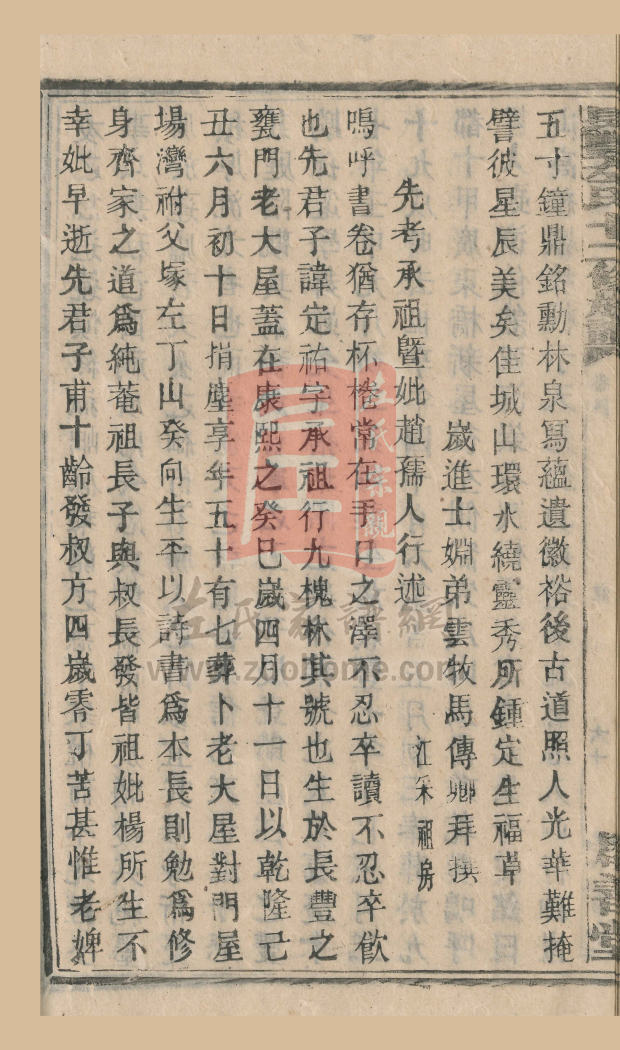 五寸鐘鼎銘勳林泉寫蘊遺徽裕後古道照人光華難掩
譬彼星辰美矣佳城山環水繞靈秀所鍾定生福草
歲進士姻弟雲牧馬傳卿拜撰
先考承祖曁妣趙孺人行述 江采祖房
嗚呼書卷猶存杯棬常在手口之澤不忍卒讀不忍卒飲
也先君子諱定祐字承祖行九槐林其號也生於長豐之
甕門老大屋蓋在康熙之癸巳歲四月十一日以乾隆己
丑六月初十日捐塵享年五十有七葬卜老大屋對門屋
場灣祔父塚左丁山癸向生平以詩書爲本長則勉爲修
身齊家之道爲純菴祖長子與叔長發皆祖妣楊所生不
幸妣早逝先君子甫十齡發叔方四歲零丁苦甚惟老婢
左氏宗親
左氏族譜網
www.zuoshome.com